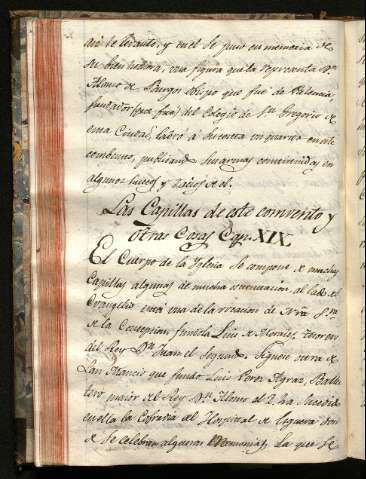 se lebanto, y en el se puso en memoria de
su bien hechora, una figura que la representa Dn
Alonso de Burgos Obispo que fue de Palencia
fundador (que fue) del Colegio de Sn Gregorio de
esta Ciudad, labró a su costa un quarto en este
combento, publican sus armas convenidas en
algunos huecos y vacios de el.
Las Capillas de este comvento y
otras Cosas Cap. XIX.
El Cuerpo de la Iglesia se compone de muchas
Capillas algunas de mucha estimacion al lado del
Evangelio está una de la vocacion de Nra Sra
de la Concepcion fundola Luis de Morales, tesorero
del Rey Dn Juan el segundo. Siguese otra de
San Mancio que fundó Luis Perez Agraz, Balles
tero maior del Rey Dn Alonso el
en ella la Cofradia del Hospital de Esgueva don
de se celebran algunas Ceremonias, La que se